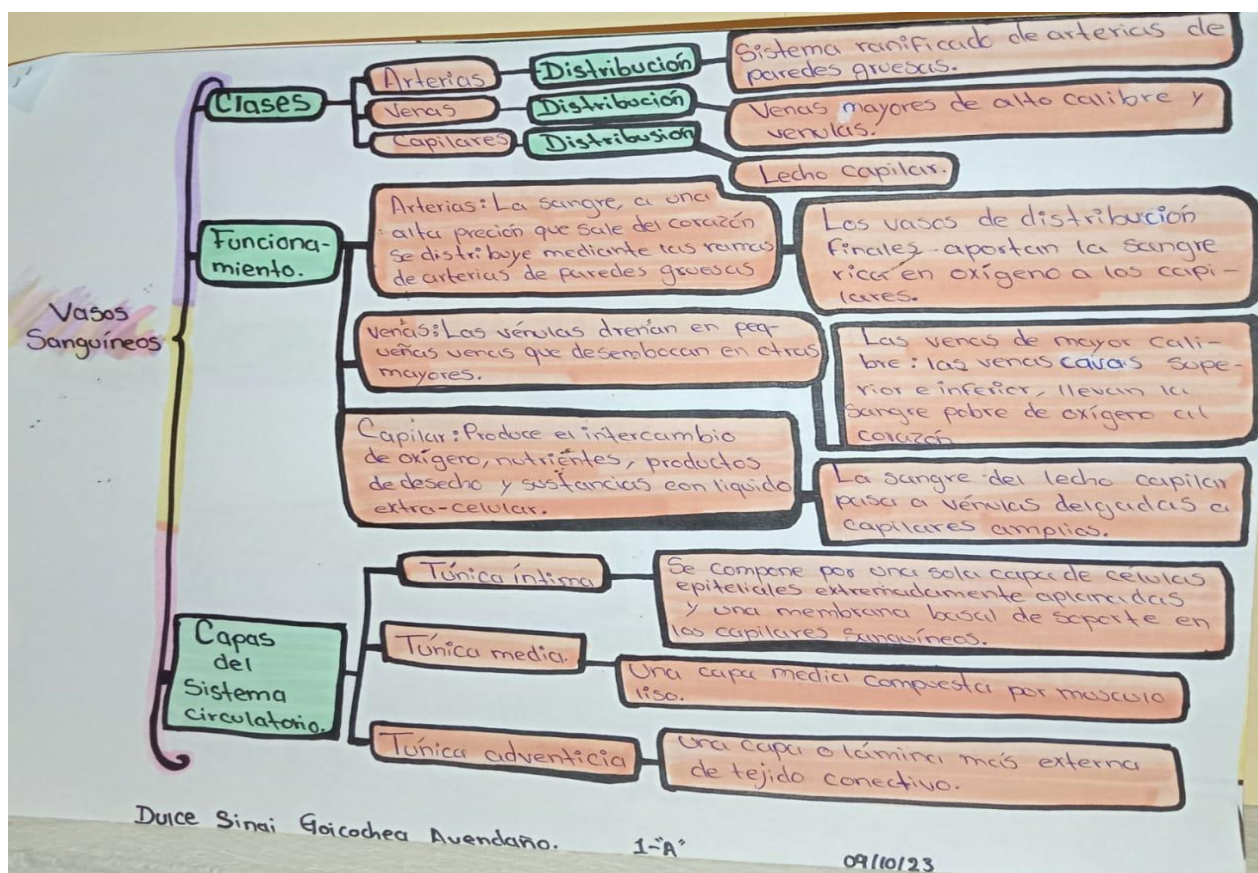 Vasos
Sanguíneos
Clases
Arterias
Distribución
Sistema ranificado de arterias de
paredes gruesas.
Venas
Distribución
Venas mayores de alto calibre y
venulas.
Capilares
Distribusión
Lecho capilar.
Funciona-
miento.
Arterias: La sangre, a una
alta preción que sale del corazón
se distribuye mediante las ramas
de arterias de paredes gruesas
Los vasos de distribución
finales aportan la sangre
rica en oxígeno a los capi-
lares.
venas: Las vénulas drenan en peq-
ueñas venas que desembocan en otras
mayores.
Las venas de mayor cali-
bre: las venas cavas supe-
rior e inferior, llevan la
sangre pobre de oxígeno al
corazón
Capilar: Produce el intercambio
de oxígeno, nutrientes, productos
de desecho y sustancias con liquido
extra-celular.
La sangre del lecho capilar
pasa a vénulas delgadas a
capilares amplios.
Capas
del
Sistema
circulatorio.
Túnica íntima
Se compone por una sola capa de células
epiteliales extremadamente aplanadas
y una membrana basal de soporte en
los capilares sanguíneos.
Túnica media.
Una capa media compuesta por musculo
liso.
Túnica adventicia
Una capa o lámina más externa
de tejido conectivo.
Dulce Sinai Goicochea Avendaño. 1-"A" 09/10/23